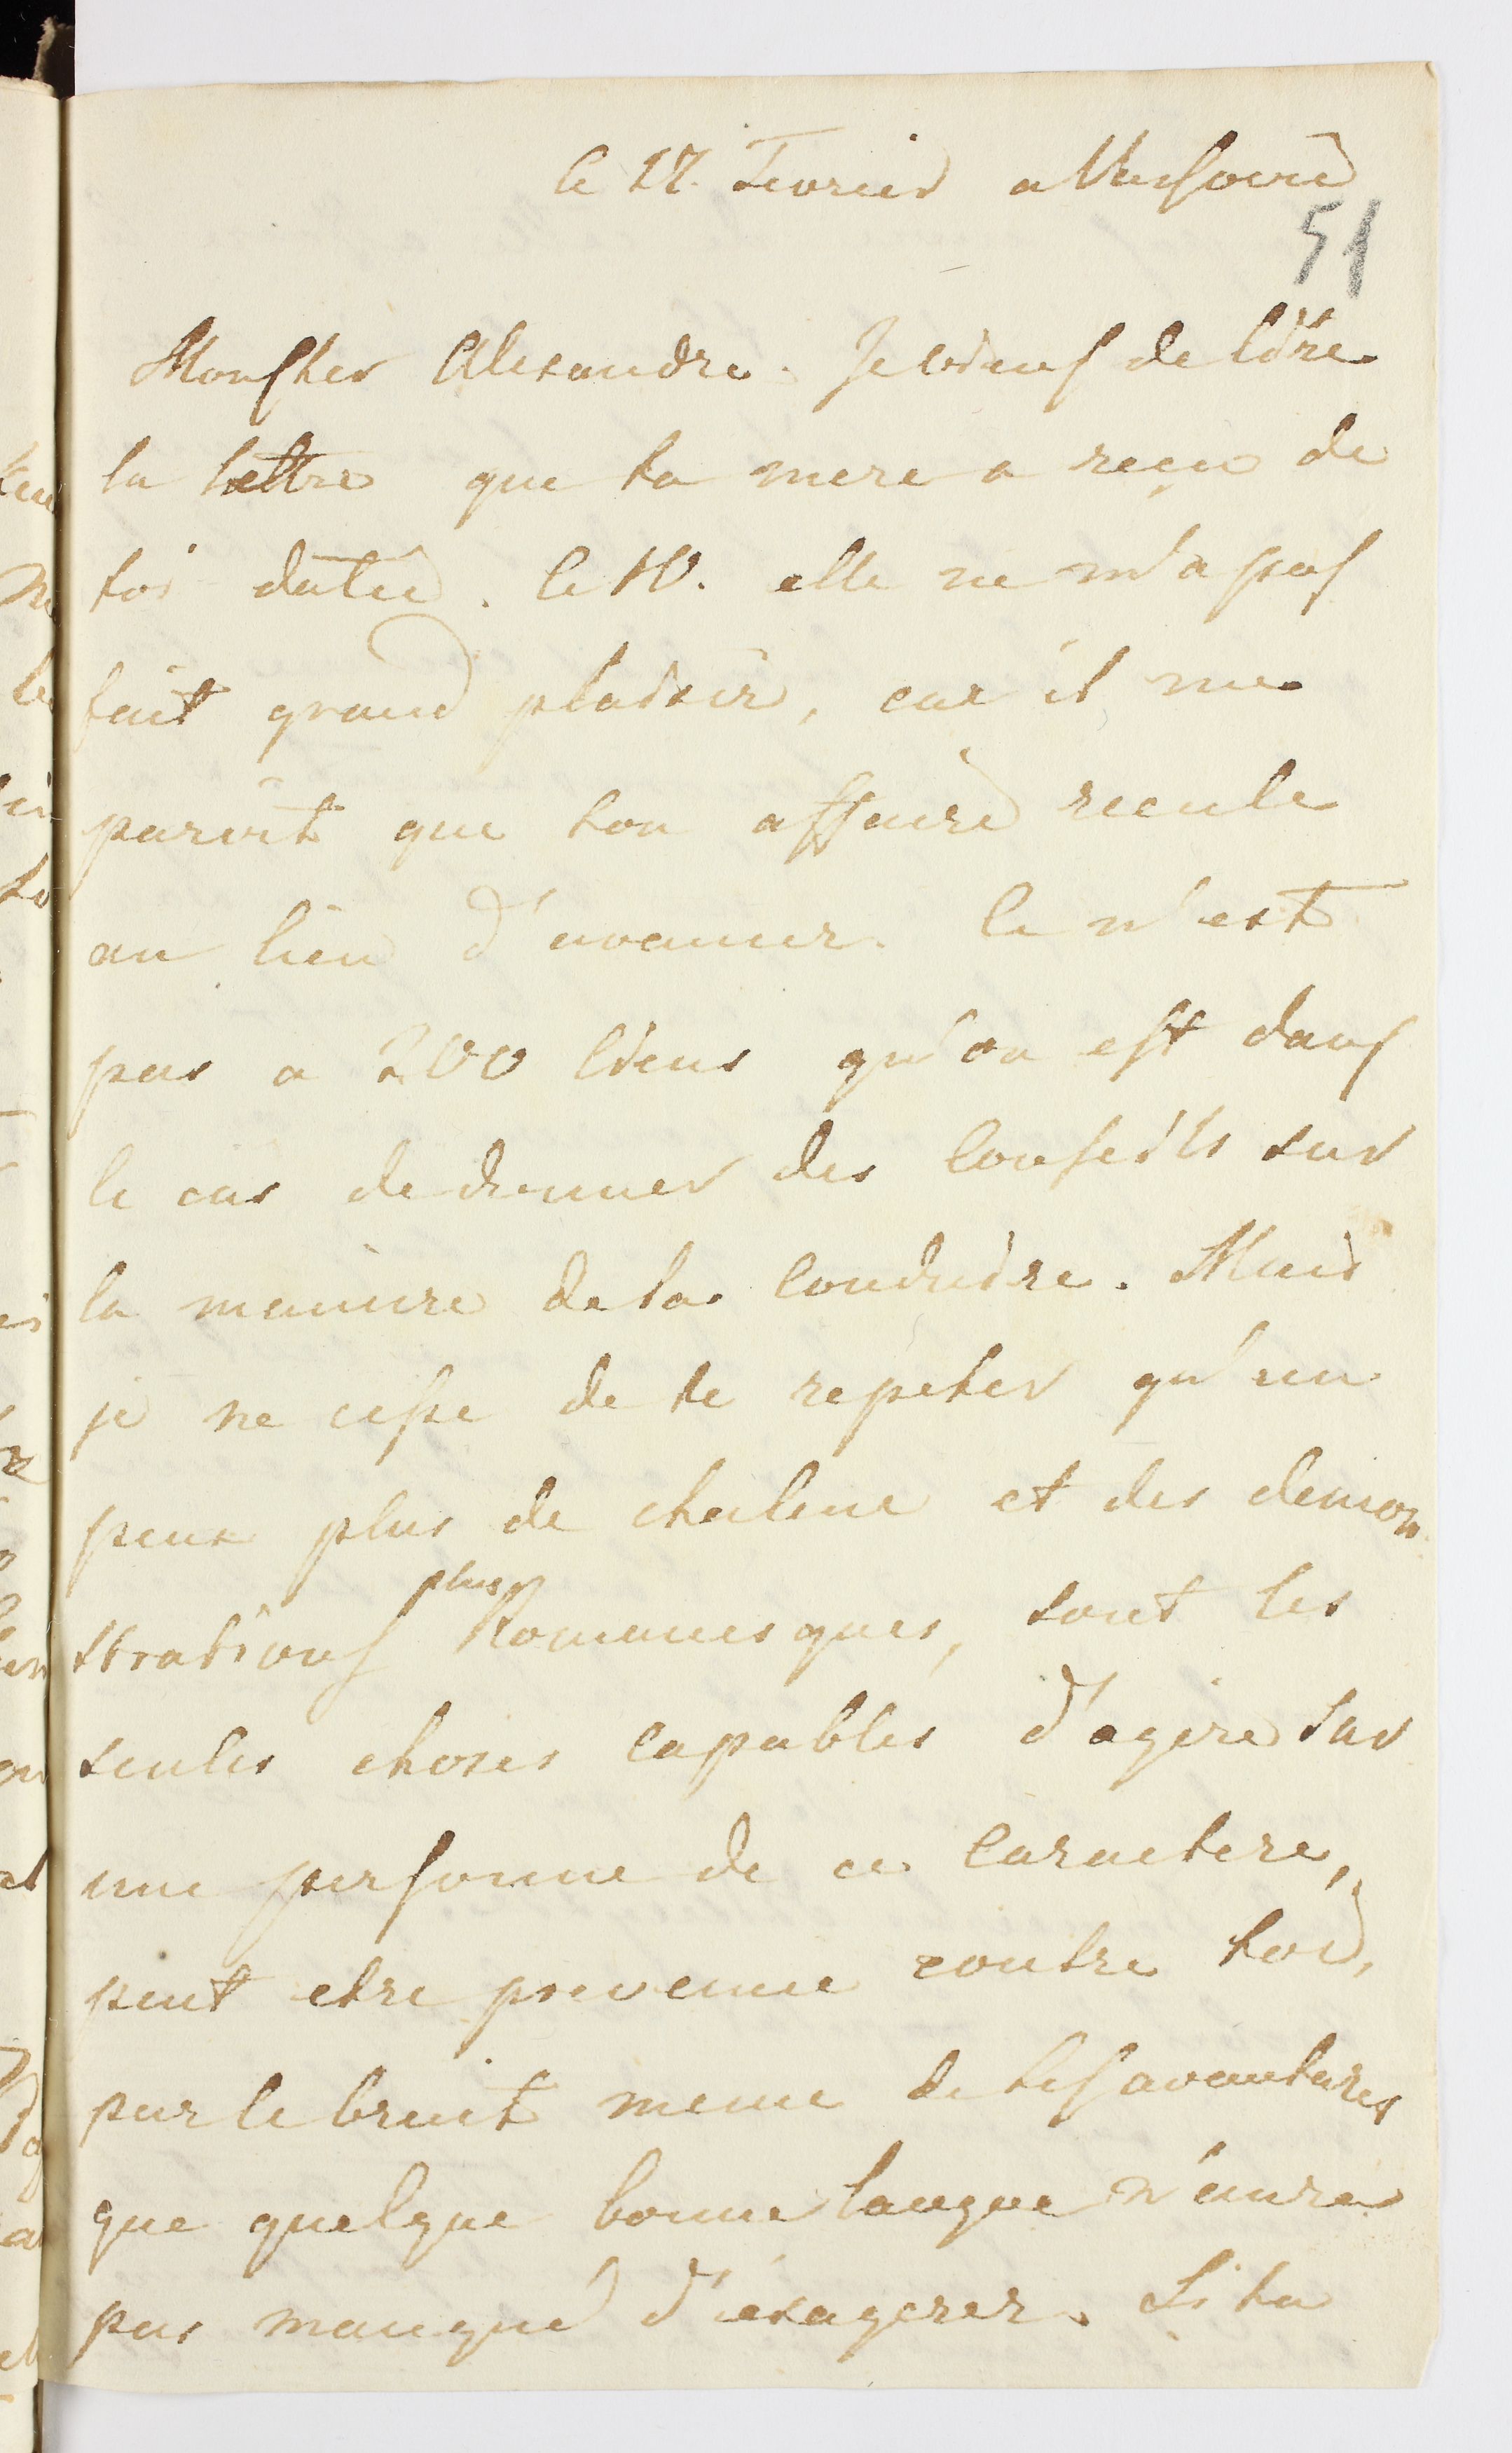 le 17. Fevrier a Varsovie
51
Mon cher Alexandre. Je viens de lire
la lettre que ta mere a reçu de
toi datée. le 10. elle ne m'a pas
fait grand plaisir, car il me
paroit que ton affaire recule
au lieu d'avancer. Ce n'est
pas a 200 lieus qu'on est dans
le cas de donner des Conseils sur
la maniere de la Conduire. Mais
je ne cesse de te repeter qu'un
peux plus de chaleur et des demon
strations plus Romanesques, sont les
seules choses capables d'agire sur
une personne de ce Caractere,
peut etre prevenue contre toi,
par le bruit meme de tes avantures
que quelque bonne langue n'aura
pas manqué d'exagerer. Si ta